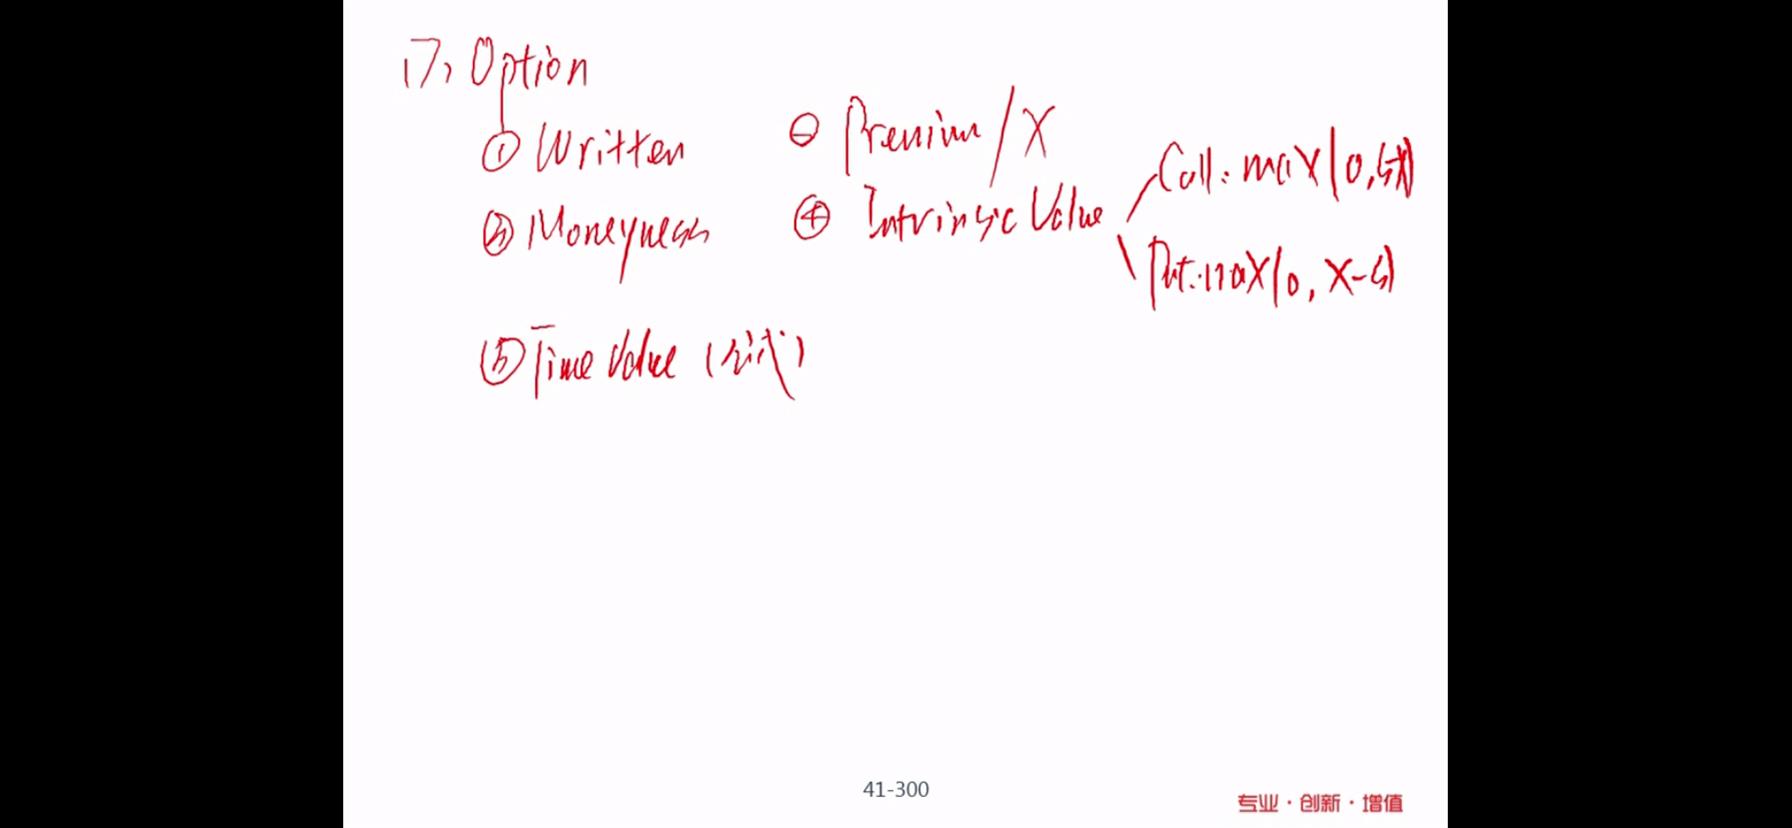 17、Option
① Written ② Premium / X
③ Moneyness ④ Intrinsic Value
Call: max(0, S-X)
Put: max(0, X-S)
⑤ Time Value (公式)
41-300
专业·创新·增值